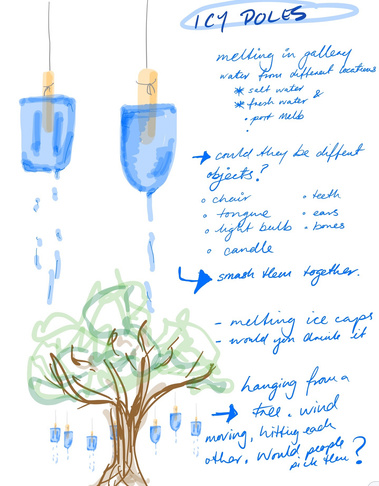 ICY POLES
melting in gallery
water from different locations
* salt water
* fresh water &
• port melb
•
→ could they be diffent
objects?
o chair
o tongue
o light bulb
o candle
• teeth
• ears
• bones
→ smash them together.
- melting ice caps
- would you drink it
hanging from a
→ tree. wind
moving, hitting each
other. Would people
pick them?